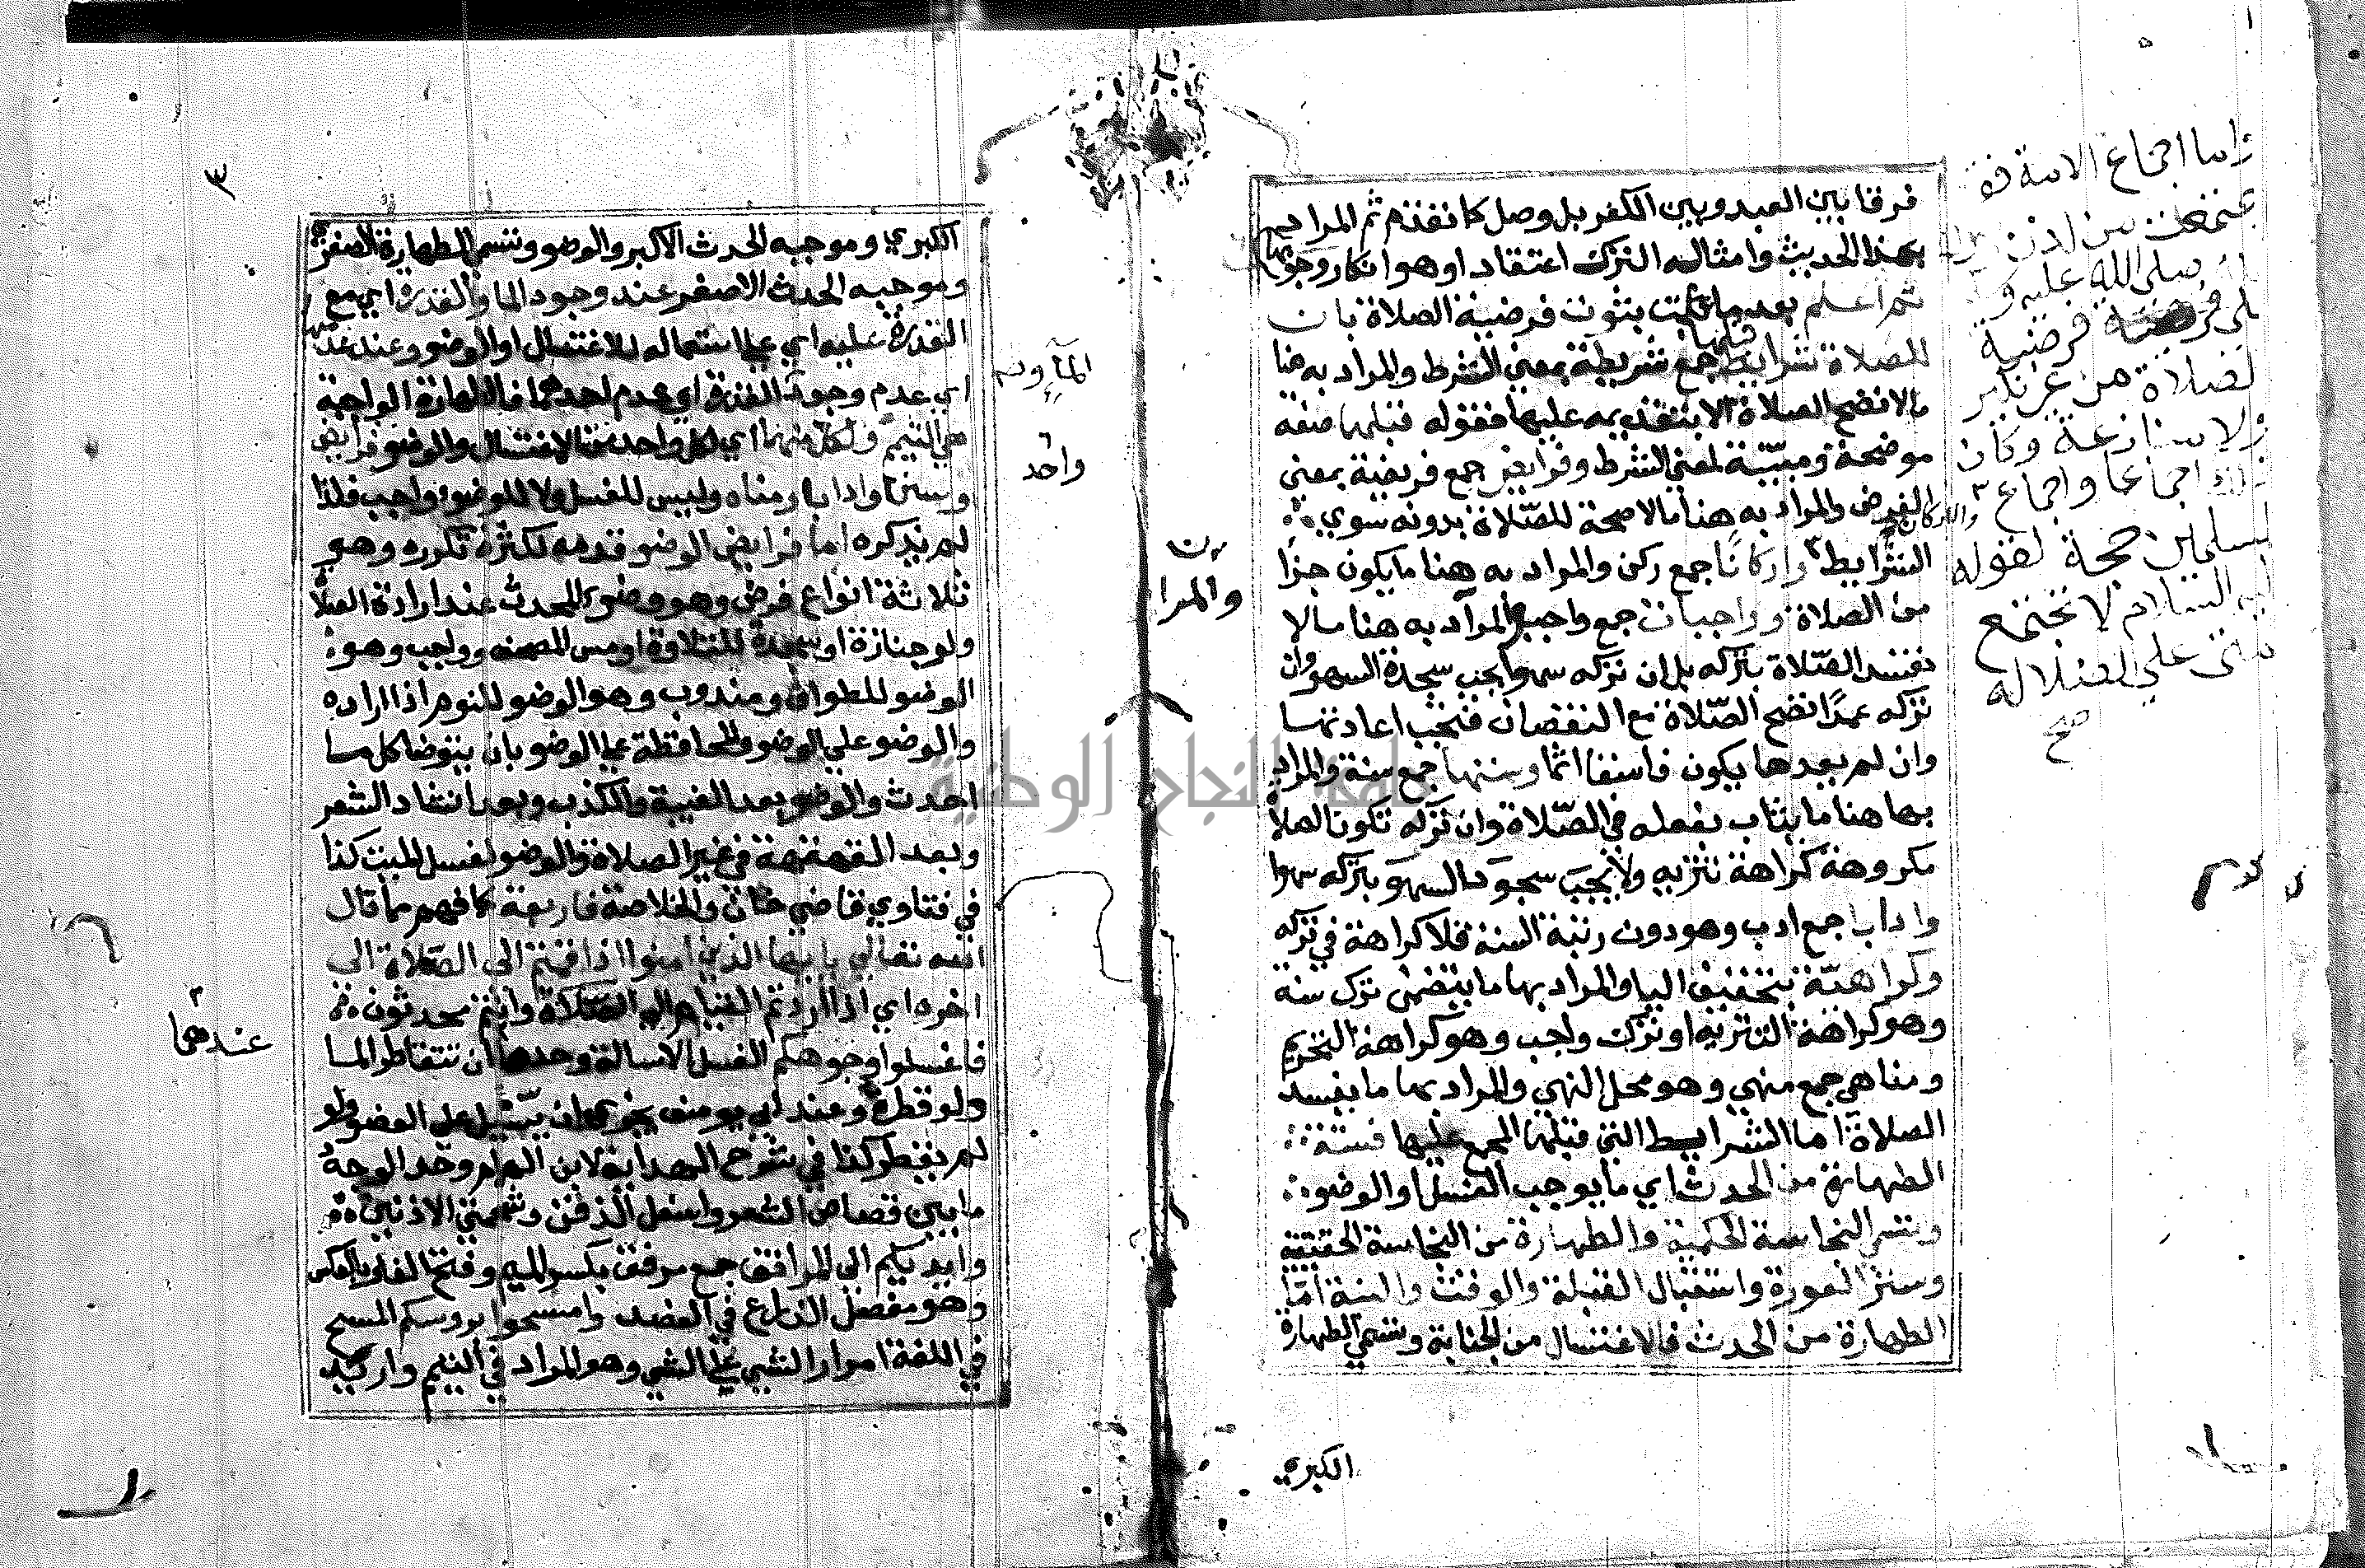 فرقا بين العبد وبين الكفر بل وصل كما تقدم ثم المراد
بهذا الحديث وامثاله الترك اعتقادا وهو انكار وجوبها
ثم اعلم بعد ما علمت بثبوت فرضية الصلاة بان
للصلاة شرايط قبلها جمع شريطة بمعنى الشرط والمراد به هنا
ما لا تصح الصلاة الا بتقديمه عليها فقوله قبلها صفة
موضحة ومبينة لمعنى الشرط وفرايض جمع فريضة بمعنى
الفرض والمراد به هنا ما لا صحة للصلاة بدونه سوي
الشرايط واركانا جمع ركن والمراد به هنا ما يكون جزأ
من الصلاة وواجبات جمع واجب والمراد به هنا ما لا
تفسد الصلاة بتركه بل ان تركه سهوا يجب سجدة السهو وان
تركه عمدا تصح الصلاة مع النقصان فتجب اعادتها
وان لم يعدها يكون فاسقا اثما وسننها جمع سنة والمراد
بها هنا ما يثاب بفعله في الصلاة وان تركه تكون الصلاة
مكروهة كراهة تنزيه ولا يجب سجود السهو بتركه سهوا
واداب جمع ادب وهو دون رتبة السنة فلا كراهة في تركه
وكراهية بتخفيف اليا والمراد بها ما يتضمن ترك سنة
وهو كراهة التنزيه او ترك واجب وهو كراهة التحريم
ومناهي جمع منهي وهو محل النهي والمراد بها ما يفسد
الصلاة اما الشرايط التي قبلها المجمع عليها فستة
الطهارة من الحدث اي ما يوجب الغسل او الوضو
النجاسة الحكمية والطهارة من النجاسة الحقيقية
وستر العورة واستقبال القبلة والوقت والنية اما
الطهارة من الحدث فالاغتسال من الجنابة وتسمي الطهارة
الكبري
واما اجماع الامة فقد
صلي الله عليه و
فرضية
الصلاة من غير نكير
ولا منازعة وكان
ذلك اجماعا واجماع
المسلمين حجة لقوله
عليه السلام لا تجتمع
امتي علي الضلالة
صح
والاركان
والمراد
٣
الكبري وموجبه الحدث الاكبر والوضو وتسمي الطهارة الصغري
وموجبه الحدث الاصغر عند وجود الما والقدرة اي مع
القدرة عليه اي علي استعماله للاغتسال او الوضو وعند عدمها
اي عدم وجود القدرة اي عدم احدهما فالطهارة الواجبة
هي التيمم ولكل منهما اي لكل واحد من الاغتسال والوضو فرايض
وسننا وادابا ومناه وليس للغسل ولا للوضو واجب فلذا
لم يذكره اما فرايض الوضو قدمه لكثرة تكرره وهو
ثلاثة انواع فرض وهو وضو المحدث عند ارادة الصلاة
ولو جنازة او سجدة للتلاوة او مس المصحف وواجب وهو
الوضو للطواف ومندوب وهو الوضو للنوم اذا اراده
والوضو علي الوضو وللمحافظة علي الوضو بان يتوضا كلما
احدث والوضو بعد الغيبة والكذب وبعد انشاد الشعر
وبعد القهقهة في غير الصلاة والوضو لغسل الميت كذا
في فتاوي قاضي خان والخلاصة فاربعة كما فهم مما قال
الله تعالي يا ايها الذين امنوا اذا قمتم الي الصلاة الي
اخره اي اذا اردتم القيام الي الصلاة وانتم محدثون
فاغسلوا وجوهكم الغسل الاسالة وحدها ان تتقاطر الما
ولو قطرة وعند ابي يوسف يجزي ان يسيل علي العضو ولو
لم يقطر كذا في شرح الهداية لابن الهمام وحد الوجه
ما بين قصاص الشعر واسفل الذقن وشحمتي الاذنين
وايديكم الي المرافق جمع مرفق بكسر الميم وفتح الفا وبالعكس
وهو مفصل الذراع في العضد وامسحوا بروسكم المسح
في اللغة امرار الشي علي الشي وهو المراد في التيمم واريد
واحد
عندهما
جامعة النجاح الوطنية